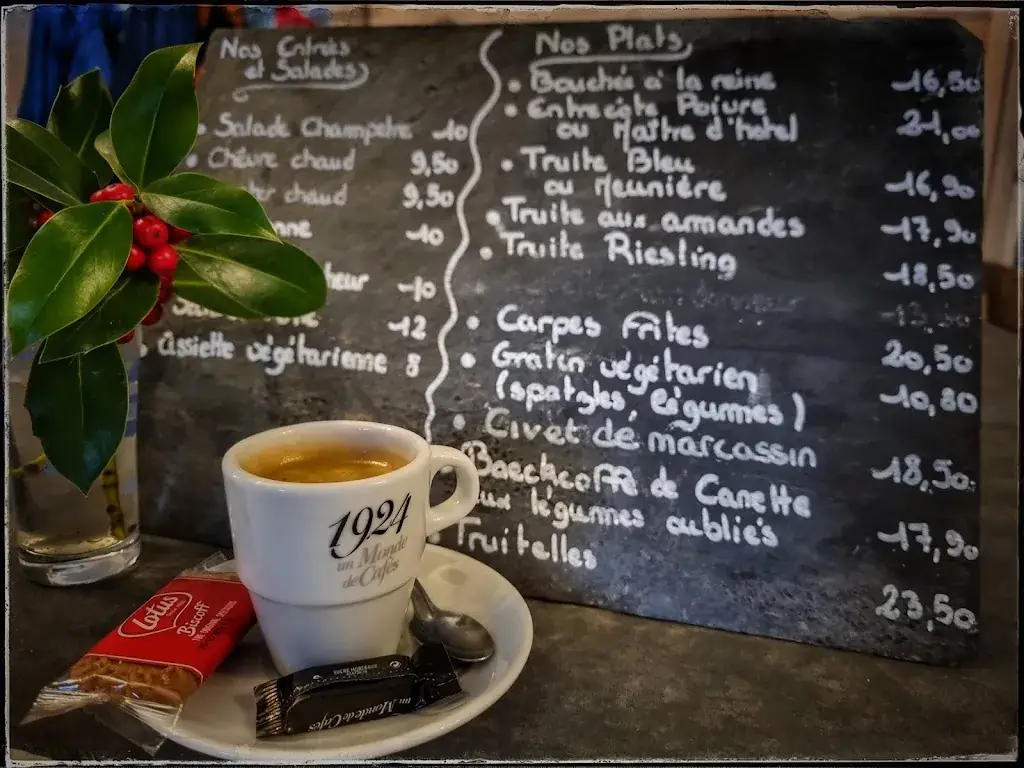 Nos Entrées
et Salades
• Salade Champetre 10
• Chèvre chaud 9,50
chaud 9,50
10
10
12
• Assiette végétarienne 8
Nos Plats
• Bouchée à la reine 16,50
• Entrecôte Poivre
ou Maître d'hotel 21,00
• Truite Bleu
ou Meunière 16,90
• Truite aux amandes 17,90
• Truite Riesling 18,50
• Carpes Frites 20,50
• Gratin végétarien 10,80
(spatzles, légumes)
• Civet de marcassin 18,50
Baeckeoffe de Canette
aux légumes oubliés 17,90
Truitelles 23,50
1924
un Monde
de Cafés
Lotus
Biscoff
un Monde de Cafés